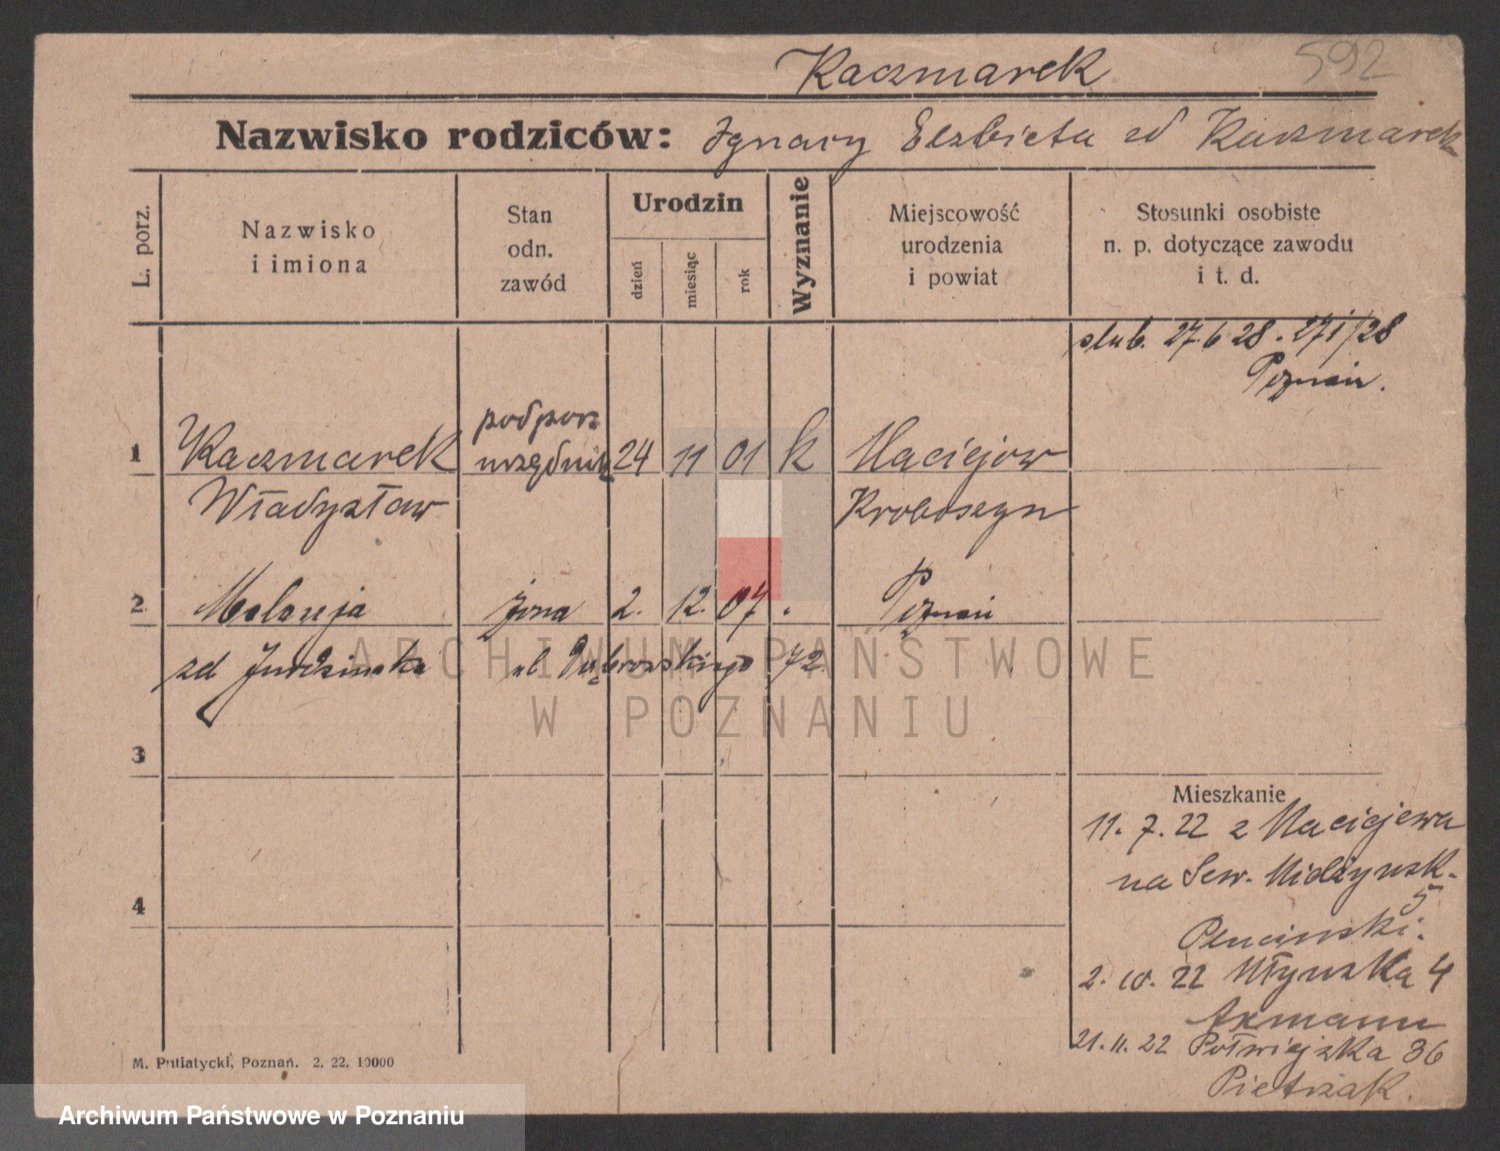 592
Kaczmarek
Nazwisko rodziców: Ignacy Elzbieta zd Kaczmarek
L. porz.
Nazwisko
i imiona
Stan
odn.
zawód
Urodzin
dzień
miesiąc
rok
Wyznanie
Miejscowość
urodzenia
i powiat
Stosunki osobiste
n. p. dotyczące zawodu
i t. d.
slub. 27.6 28. 271/28
Poznań.
podporz
1 Kaczmarek urzędnik 24 11 01 k Maciejow
Władysław Krotoszyn
2 żona 2. 12. 07 . Poznań
zd ul. Dąbrowskiego 72
ARCHIWUM PAŃSTWOWE
W POZNANIU
3
Mieszkanie
11. 7. 22 z Maciejewa
na Sew. Mielżyńsk.
5
4
2. 10. 22 Młyńska 4
Axmann
21. 11. 22 Półwiejska 36
Pietrzak.
M. Putiatycki, Poznań. 2. 22. 10000
Archiwum Państwowe w Poznaniu